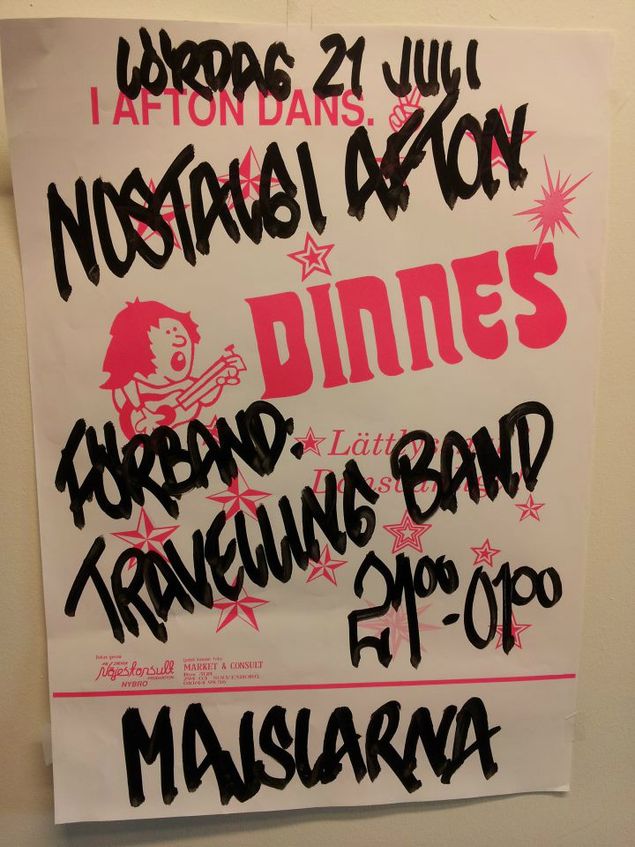 LÖRDAG 21 JULI
I AFTON DANS.
NOSTALGI AFTON
DINNES
FÖRBAND:
TRAVELLING BAND
21⁰⁰-01⁰⁰
Nöjeskonsult
PRODUCTION
NYBRO
MARKET & CONSULT
MAJSIARNA